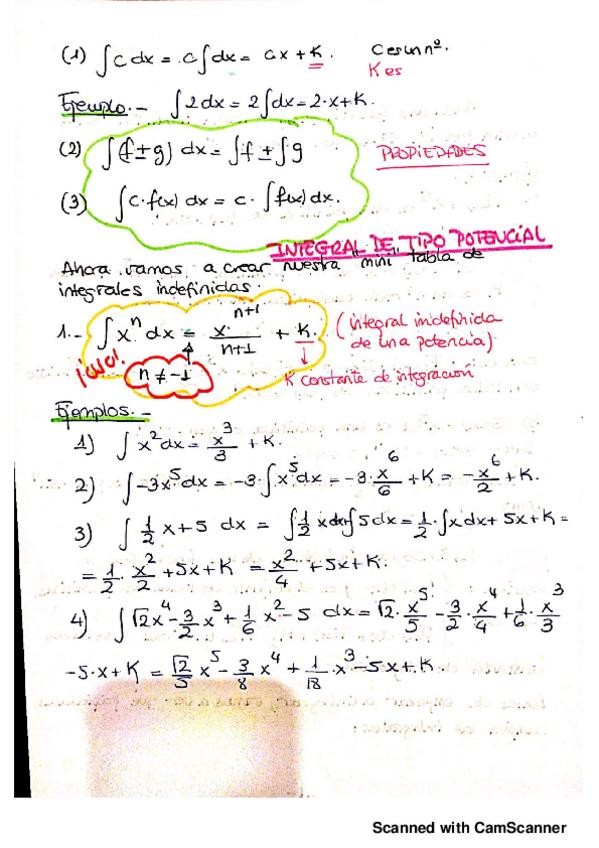 (1) ∫c dx = c∫dx = cx + K. C es un nº.
K es
Ejemplo.- ∫2dx = 2∫dx = 2·x+K.
(2) ∫(f±g) dx = ∫f ± ∫g
PROPIEDADES
(3) ∫c·f(x) dx = c · ∫f(x) dx.
INTEGRAL DE TIPO POTENCIAL
Ahora vamos a crear nuestra mini tabla de
integrales indefinidas.
1.- ∫xⁿ dx = xⁿ⁺¹/(n+1) + K. (integral indefinida
de una potencia)
¡OJO! n ≠ -1
K constante de integración
Ejemplos.-
1) ∫x²dx = x³/3 + K.
2) ∫-3x⁵dx = -3·∫x⁵dx = -3·x⁶/6 + K = -x⁶/2 + K.
3) ∫1/2 x+5 dx = ∫1/2 xdx+∫5dx = 1/2·∫xdx + 5x+K =
= 1/2 · x²/2 + 5x + K = x²/4 + 5x + K.
4) ∫√2x⁴ - 3/2 x³ + 1/6 x² - 5 dx = √2·x⁵/5 - 3/2·x⁴/4 + 1/6·x³/3
-5·x+K = √2/5 x⁵ - 3/8 x⁴ + 1/18·x³ - 5x+K
Scanned with CamScanner